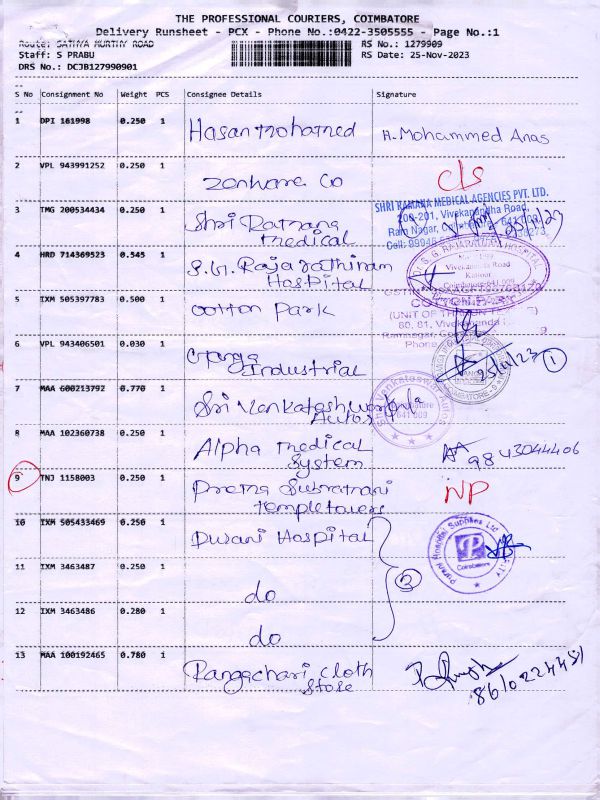 THE PROFESSIONAL COURIERS, COIMBATORE
Delivery Runsheet - PCX - Phone No.:0422-3505555 - Page No.:1
Route: SATHYA MURTHY ROAD RS No.: 1279909
Staff: S PRABU RS Date: 25-Nov-2023
DRS No.: DCJB127990901
S No Consignment No Weight PCS Consignee Details Signature
1 DPI 161998 0.250 1 Hasan Mohamed A. Mohammed Anas
2 VPL 943991252 0.250 1 Zonware Co c/s
SHRI RAMANA MEDICAL AGENCIES PVT. LTD.
208-201, Vivekanandha Road,
Ram Nagar, Coimbatore 641 009
3 TMG 200534434 0.250 1 Shri Ramana
Medical
4 HRD 714369523 0.545 1 S.G. Rajarathinam
Hospital
Dr. S. G. RAJARATHINAM HOSPITAL
Vivekananda Road
5 IXM 505397783 0.500 1 Cotton Park
COTTON PARK
80, 81, Vivekananda
Ramnagar,
Phone
6 VPL 943406501 0.030 1 Ganga
Industrial 25/11/23 1
7 MAA 600213792 0.770 1 Sri Venkateshwara
Autos
Sri Venkateswara Autos
641 009
8 MAA 102360738 0.250 1 Alpha Medical
System 9843044406
9 TNJ 1158003 0.250 1 Prema Subramani NP
Temple Towers
10 IXM 505433469 0.250 1 Pwani Hospital
Purani Hospital Supplies Ltd
Coimbatore
11 IXM 3463487 0.250 1 do 3
12 IXM 3463486 0.280 1 do
13 MAA 100192465 0.780 1 Rangachari Cloth
Store